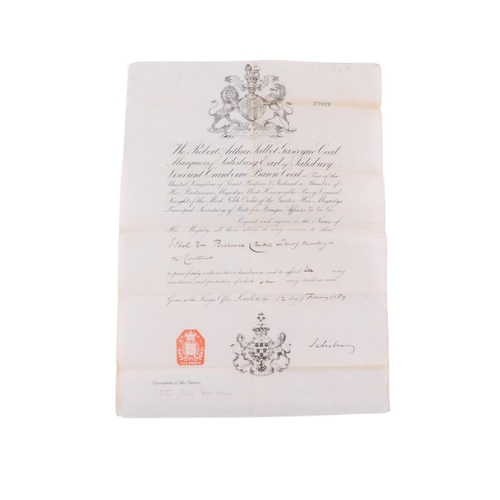 We Robert Arthur Talbot Gascoyne Cecil,
Marquess of Salisbury Earl of Salisbury,
Viscount Cranborne Baron Cecil, a Peer of the
United Kingdom of Great Britain & Ireland a Member of
Her Britannic Majesty's Most Honourable Privy Council
Knight of the Most Noble Order of the Garter, Her Majesty's
Principal Secretary of State for Foreign Affairs &c &c &c
Request and require in the Name of
Her Majesty, all those whom it may concern to allow
Ethel Rose (British Subject) travelling on
the Continent
to pass freely without let or hindrance and to afford her every
assistance and protection of which she may stand in need.
Given at the Foreign Office, London, the 12 day of February 1889
Salisbury
Signature of the Bearer